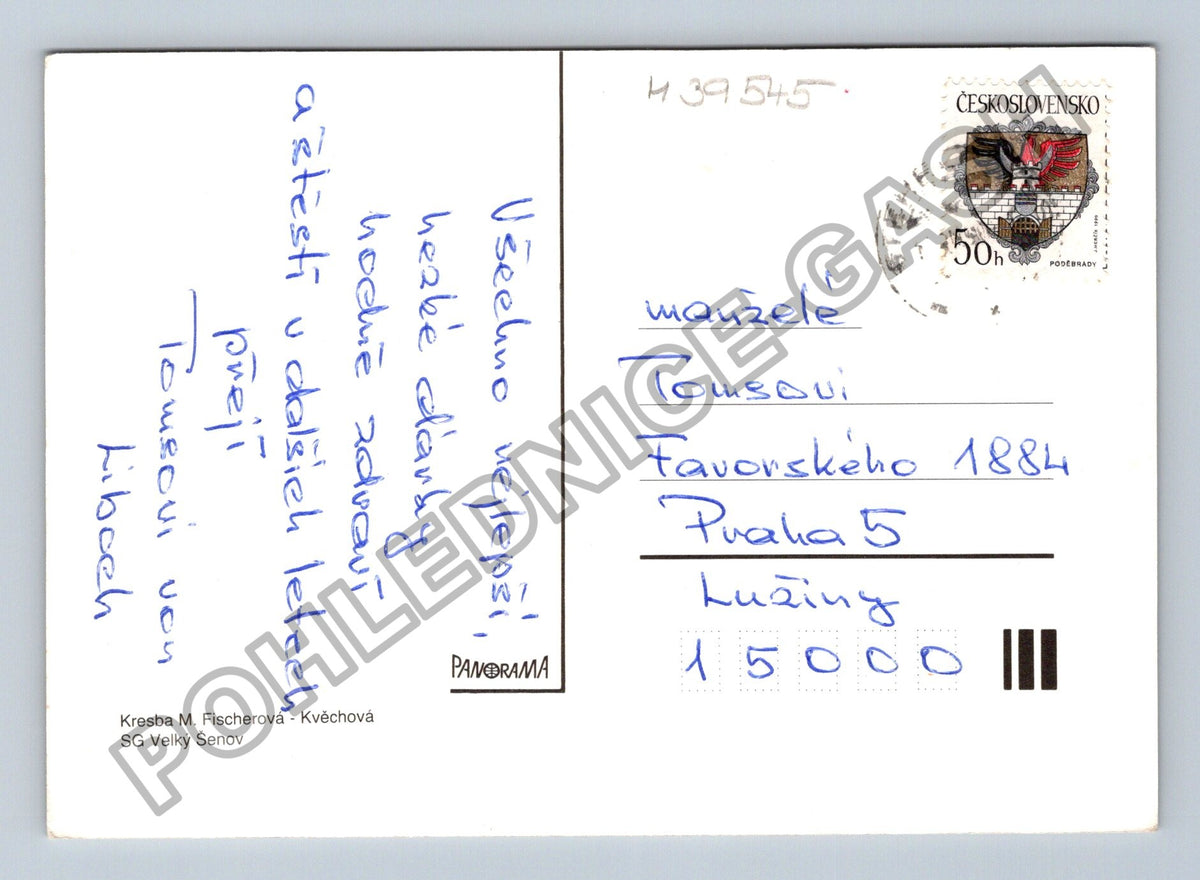 Všechno nejlepší,
hezké dárky
hodně zdraví
a štěstí v dalších letech
přejí
Tomsovi von
Liboch
H39545
ČESKOSLOVENSKO
50h
PODĚBRADY
J.HERČÍK 1990
manželé
Tomsovi
Favorského 1884
Praha 5
Lužiny
15000
PANORAMA
Kresba M. Fischerová - Kvěchová
SG Velký Šenov
POHLEDNICE-GASH